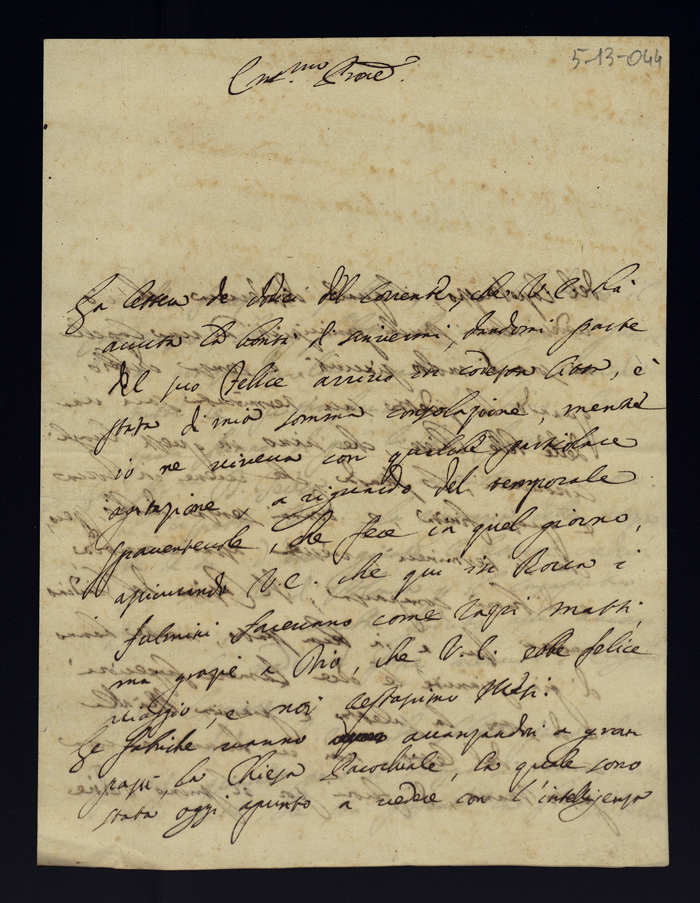 5-13-044
Em.mo Prone.
La lettera de dodici del corrente, che V.E. hà
avuta la bontà di scrivermi, dandomi parte
del suo felice arrivo in cotesta Città, è
stata di mia somma consolazione, mentre
io ne viveva con qualche particolare
agitazione, a riguardo del temporale
spaventevole, che fece in quel giorno,
assicurando V.E. che qui in Rocca i
fulmini facevano come razzi matti,
ma grazie a Dio, che V.E. ebbe felice
viaggio, e noi restassimo illesi.
Le fabriche vanno avanzandosi a gran
passi, la Chiesa Parochiale, la quale sono
stata oggi apunto a vedere con l'intelligenza